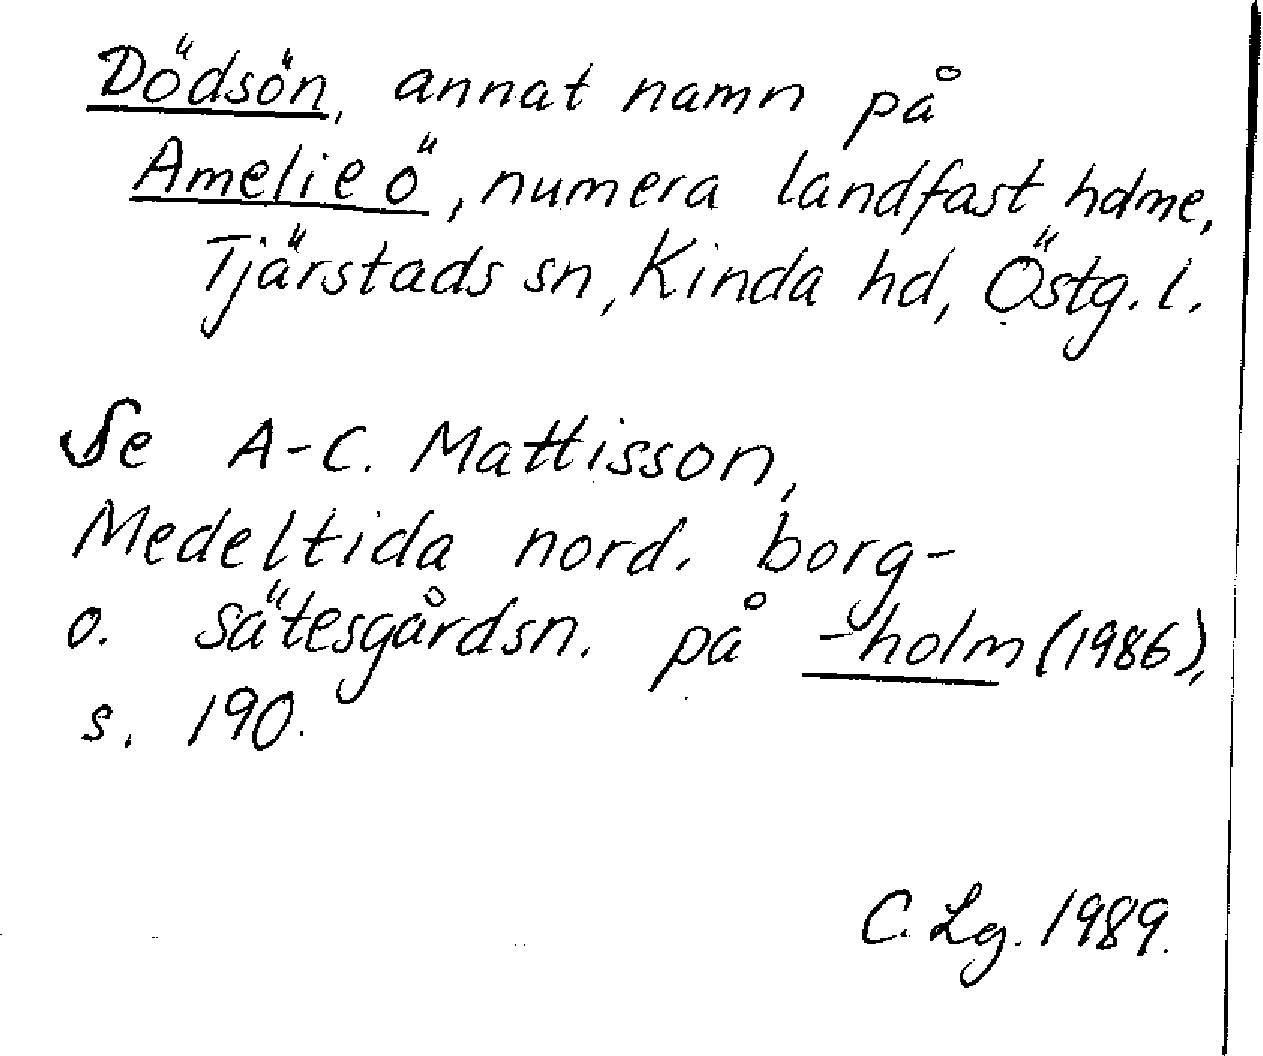 Dödsön, annat namn på
Amelie ö, numera landfast hdme,
Tjärstads sn, Kinda hd, Östg. l.
Se A-C. Mattisson,
Medeltida nord. borg-
o. sätesgårdsn. på -holm (1986),
s. 190.
C. Lg. 1989.